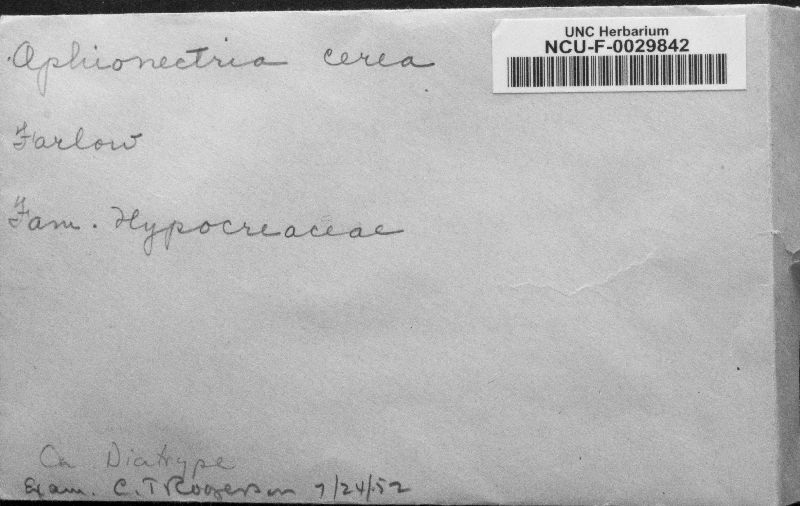 Ophionectria cerea
UNC Herbarium
NCU-F-0029842
Farlow
Fam. Hypocreaceae
On Diatrype
Exam. C. T Rogerson 7/24/52